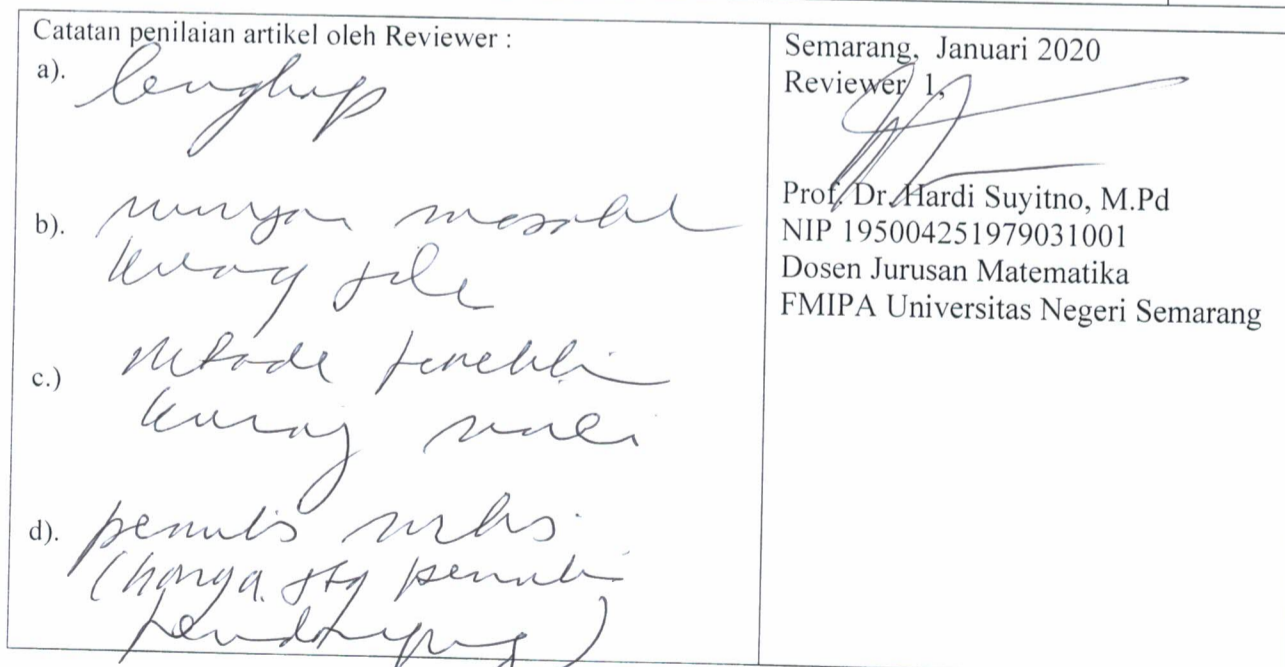 Catatan penilaian artikel oleh Reviewer :
a). lengkap
b). masalah
kurang
c.) metode
kurang
d). penulis
(hanya sbg penulis
pendamping)
Semarang, Januari 2020
Reviewer 1,
Prof. Dr. Hardi Suyitno, M.Pd
NIP 195004251979031001
Dosen Jurusan Matematika
FMIPA Universitas Negeri Semarang